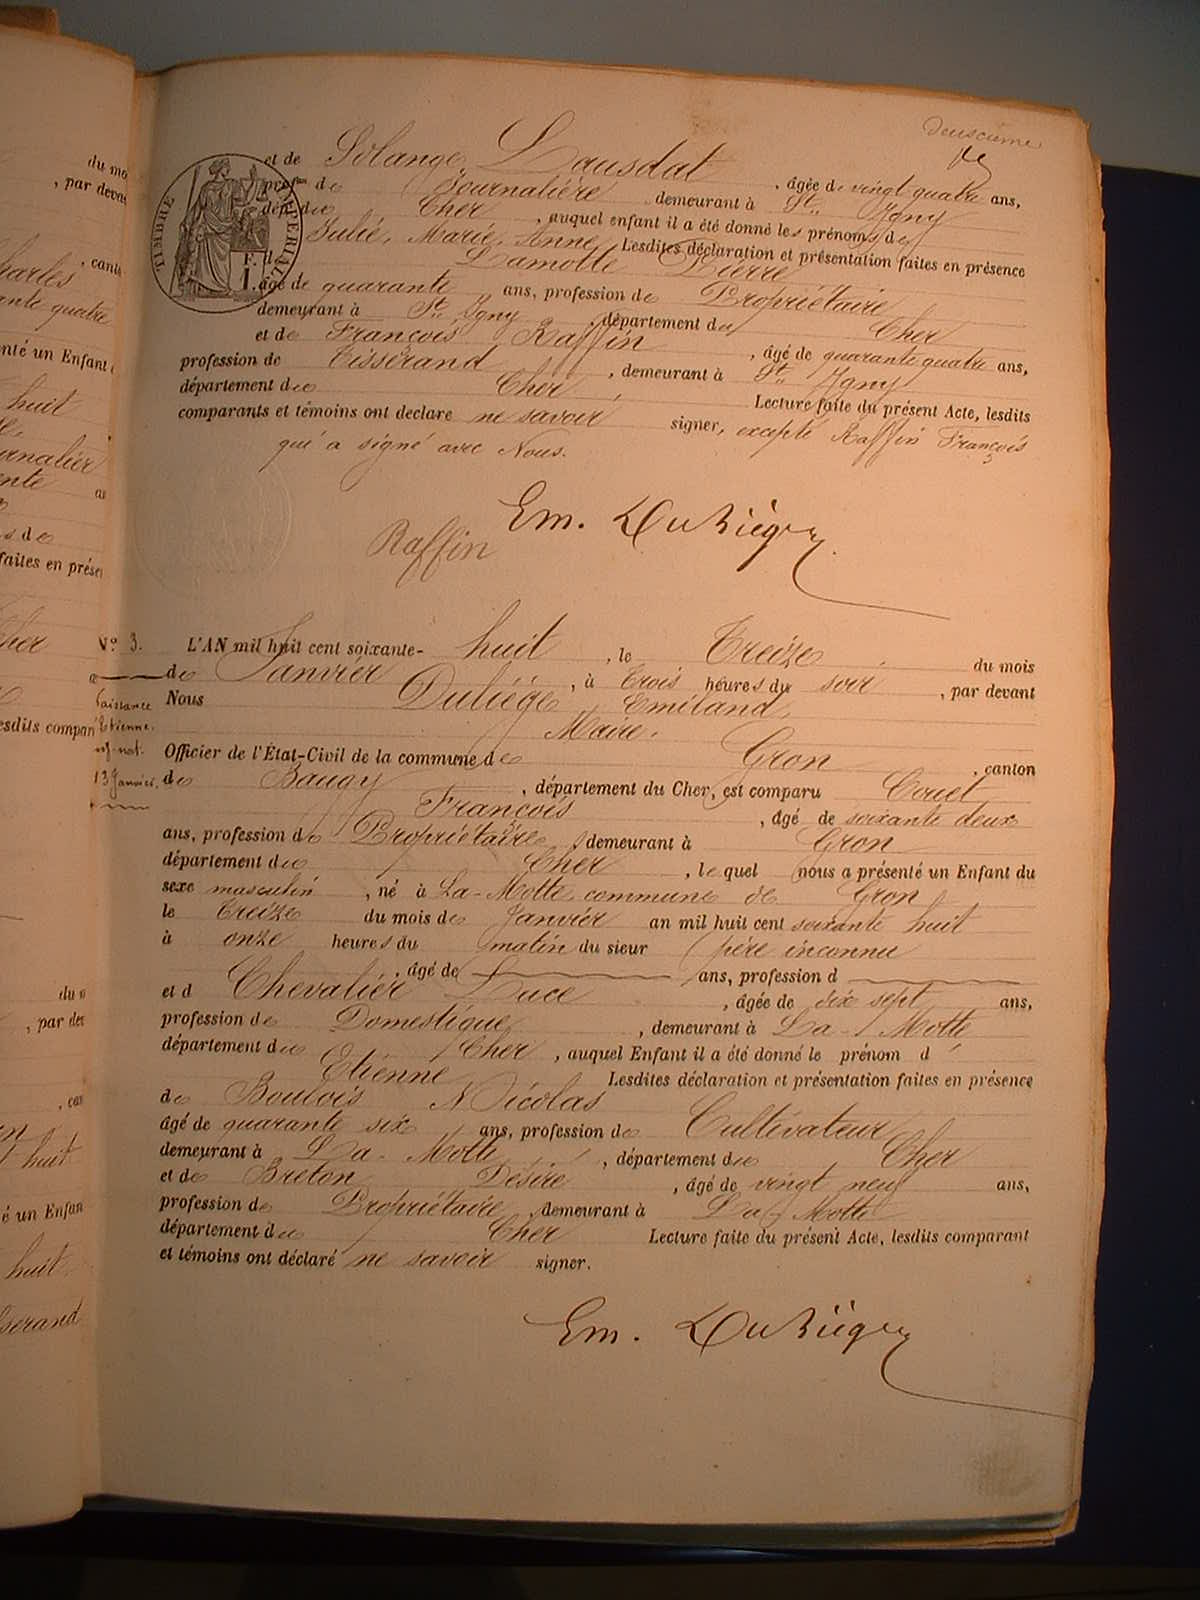 deuxième
et de Solange Lausdat, âgée de vingt quatre ans,
profon de Journalière demeurant à St. Igny
dépt du Cher, auquel enfant il a été donné les prénoms de
Julie, Marie, Anne, Lesdites déclaration et présentation faites en présence
de Lamotte Pierre
âgé de quarante ans, profession de Propriétaire
demeurant à St. Igny, département du Cher
et de François Raffin, âgé de quarante quatre ans,
profession de Tisserand, demeurant à St. Igny
département du Cher, Lecture faite du présent Acte, lesdits
comparants et témoins ont déclaré ne savoir signer, excepté Raffin François
qui a signé avec Nous.
TIMBRE IMPÉRIAL
F.
1.
Raffin
N° 3.
L'AN mil huit cent soixante-huit, le Treize du mois
de Janvier, à Trois heures du soir, par devant
Nous Duliége Emiland,
Maire.
Officier de l'État-Civil de la commune de Gron, canton
de Baugy, département du Cher, est comparu Couet
François, âgé de soixante deux
ans, profession de Propriétaire, demeurant à Gron
département du Cher, lequel nous a présenté un Enfant du
sexe masculin, né à La-Motte, commune de Gron
le Treize du mois de Janvier an mil huit cent soixante huit
à onze heures du matin du sieur (père inconnu
, âgé de ans, profession d
et d Chevalier Luce, âgée de dix sept ans,
profession de Domestique, demeurant à La-Motte,
département du Cher, auquel Enfant il a été donné le prénom d'
Etienne Lesdites déclaration et présentation faites en présence
de Boulois Nicolas
âgé de quarante six ans, profession de Cultivateur
demeurant à La-Motte, département du Cher
et de Breton Désiré, âgé de vingt neuf ans,
profession de Propriétaire, demeurant à La-Motte
département du Cher Lecture faite du présent Acte, lesdits comparant
et témoins ont déclaré ne savoir signer.
Naissance
Etienne.
enf. nat.
13 Janvier.